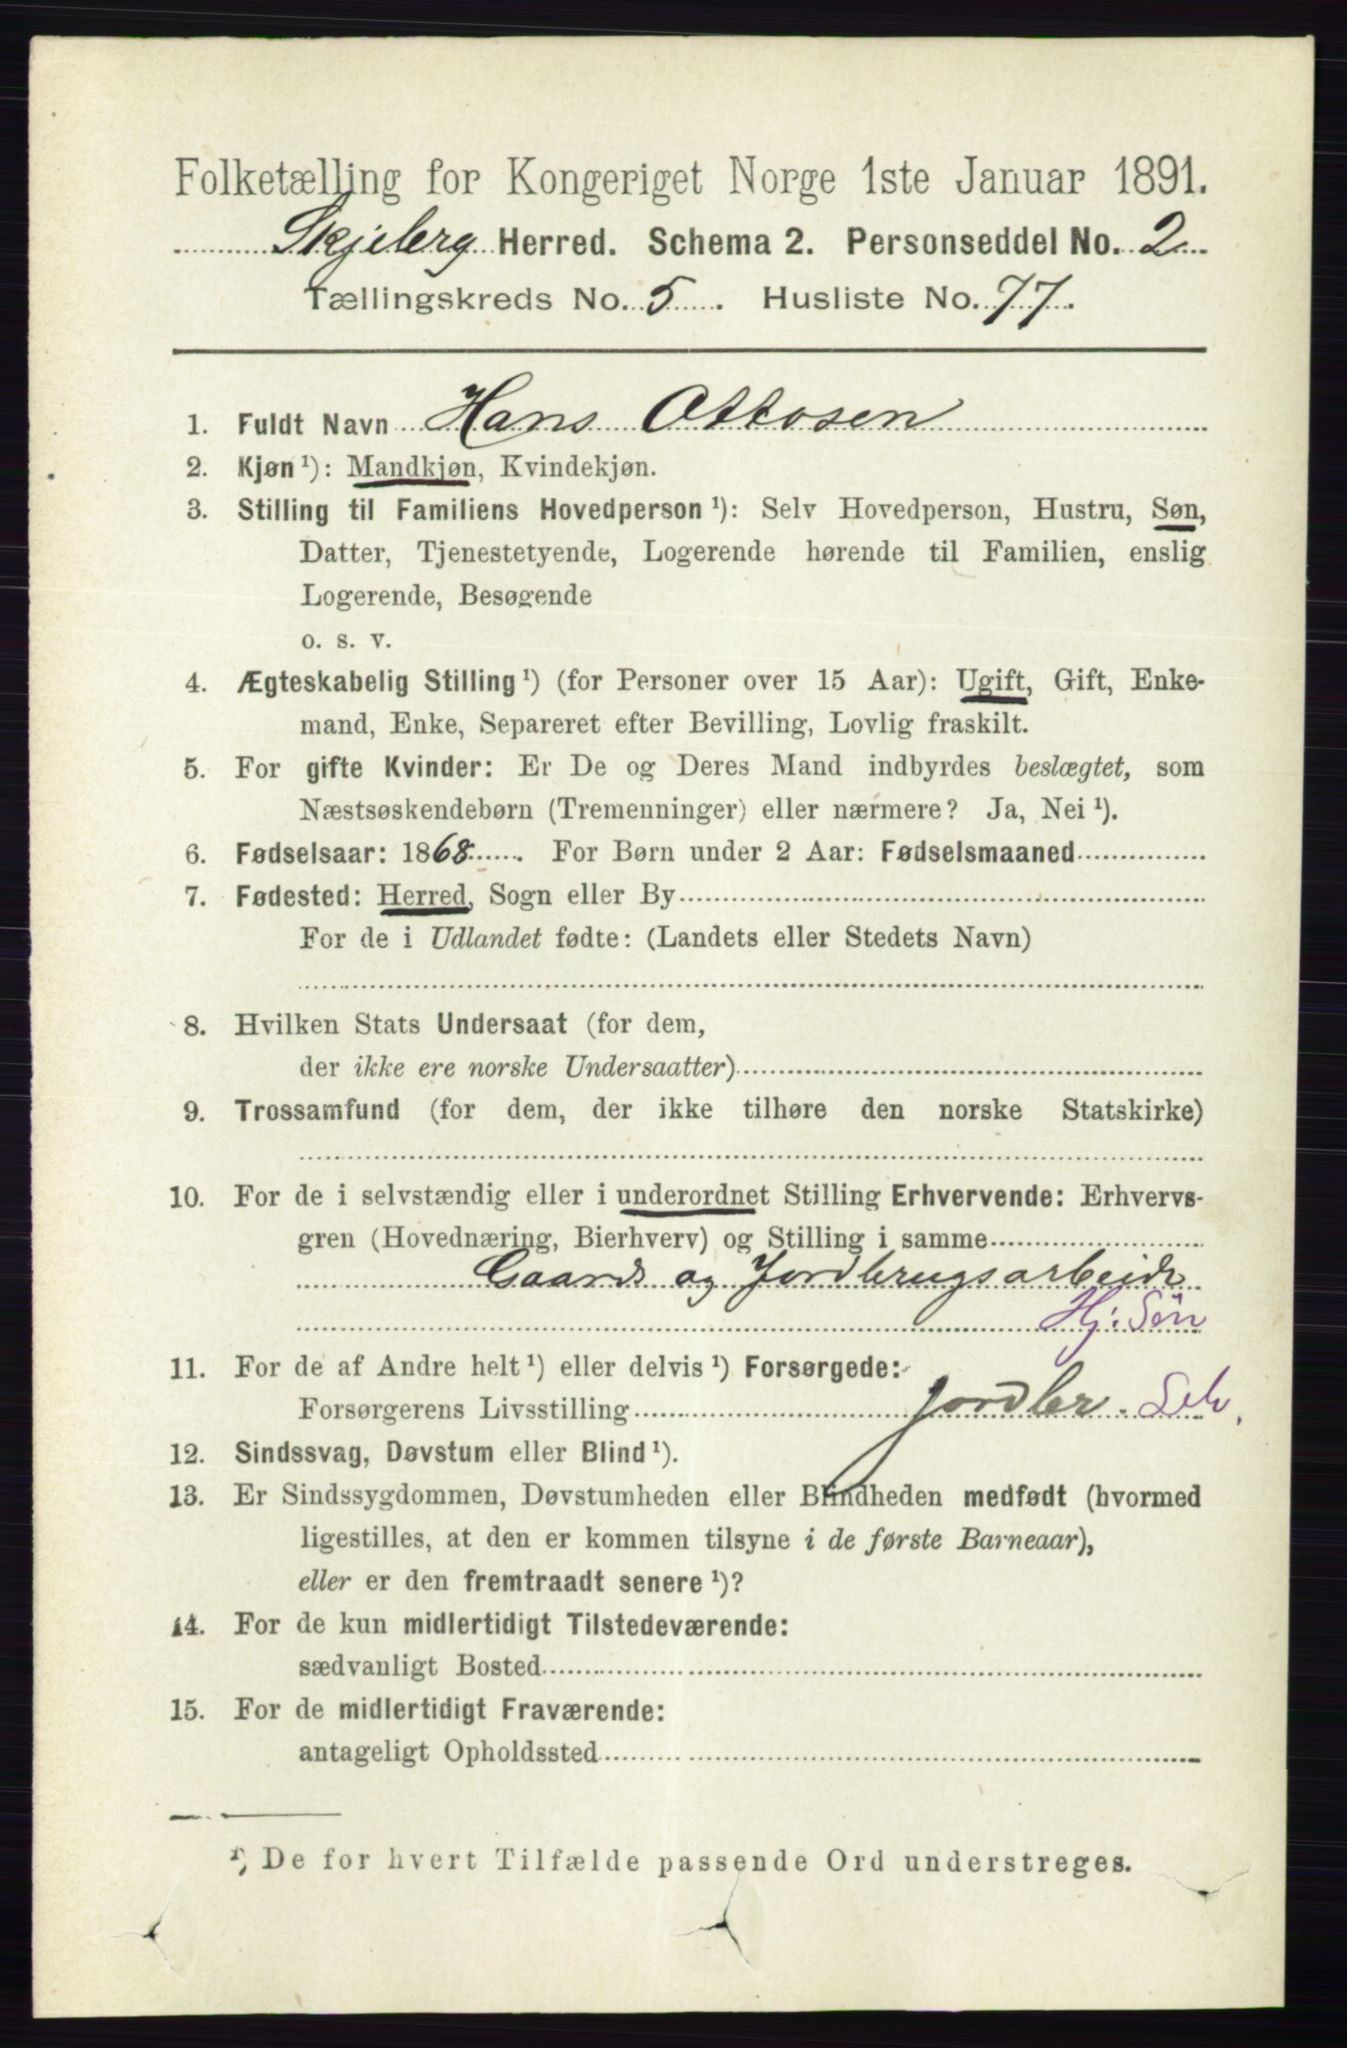 Folketælling for Kongeriget Norge 1ste Januar 1891.
Skjeberg Herred. Schema 2. Personseddel No. 2
Tællingskreds No. 5. Husliste No. 77.
1. Fuldt Navn Hans Ottosen
2. Kjøn ¹): Mandkjøn, Kvindekjøn.
3. Stilling til Familiens Hovedperson ¹): Selv Hovedperson, Hustru, Søn,
Datter, Tjenestetyende, Logerende hørende til Familien, enslig
Logerende, Besøgende
o. s. v.
4. Ægteskabelig Stilling ¹) (for Personer over 15 Aar): Ugift, Gift, Enke-
mand, Enke, Separeret efter Bevilling, Lovlig fraskilt.
5. For gifte Kvinder: Er De og Deres Mand indbyrdes beslægtet, som
Næstsøskendebørn (Tremenninger) eller nærmere? Ja, Nei ¹).
6. Fødselsaar: 1868. For Børn under 2 Aar: Fødselsmaaned
7. Fødested: Herred, Sogn eller By
For de i Udlandet fødte: (Landets eller Stedets Navn)
8. Hvilken Stats Undersaat (for dem,
der ikke ere norske Undersaatter)
9. Trossamfund (for dem, der ikke tilhøre den norske Statskirke)
10. For de i selvstændig eller i underordnet Stilling Erhvervende: Erhvervs-
gren (Hovednæring, Bierhverv) og Stilling i samme
Gaards og Jordbrugsarbeide
Hj: Søn
11. For de af Andre helt ¹) eller delvis ¹) Forsørgede:
Forsørgerens Livsstilling Jordbr. Selv.
12. Sindssvag, Døvstum eller Blind ¹).
13. Er Sindssygdommen, Døvstumheden eller Blindheden medfødt (hvormed
ligestilles, at den er kommen tilsyne i de første Barneaar),
eller er den fremtraadt senere ¹)?
14. For de kun midlertidigt Tilstedeværende:
sædvanligt Bosted
15. For de midlertidigt Fraværende:
antageligt Opholdssted
¹) De for hvert Tilfælde passende Ord understreges.